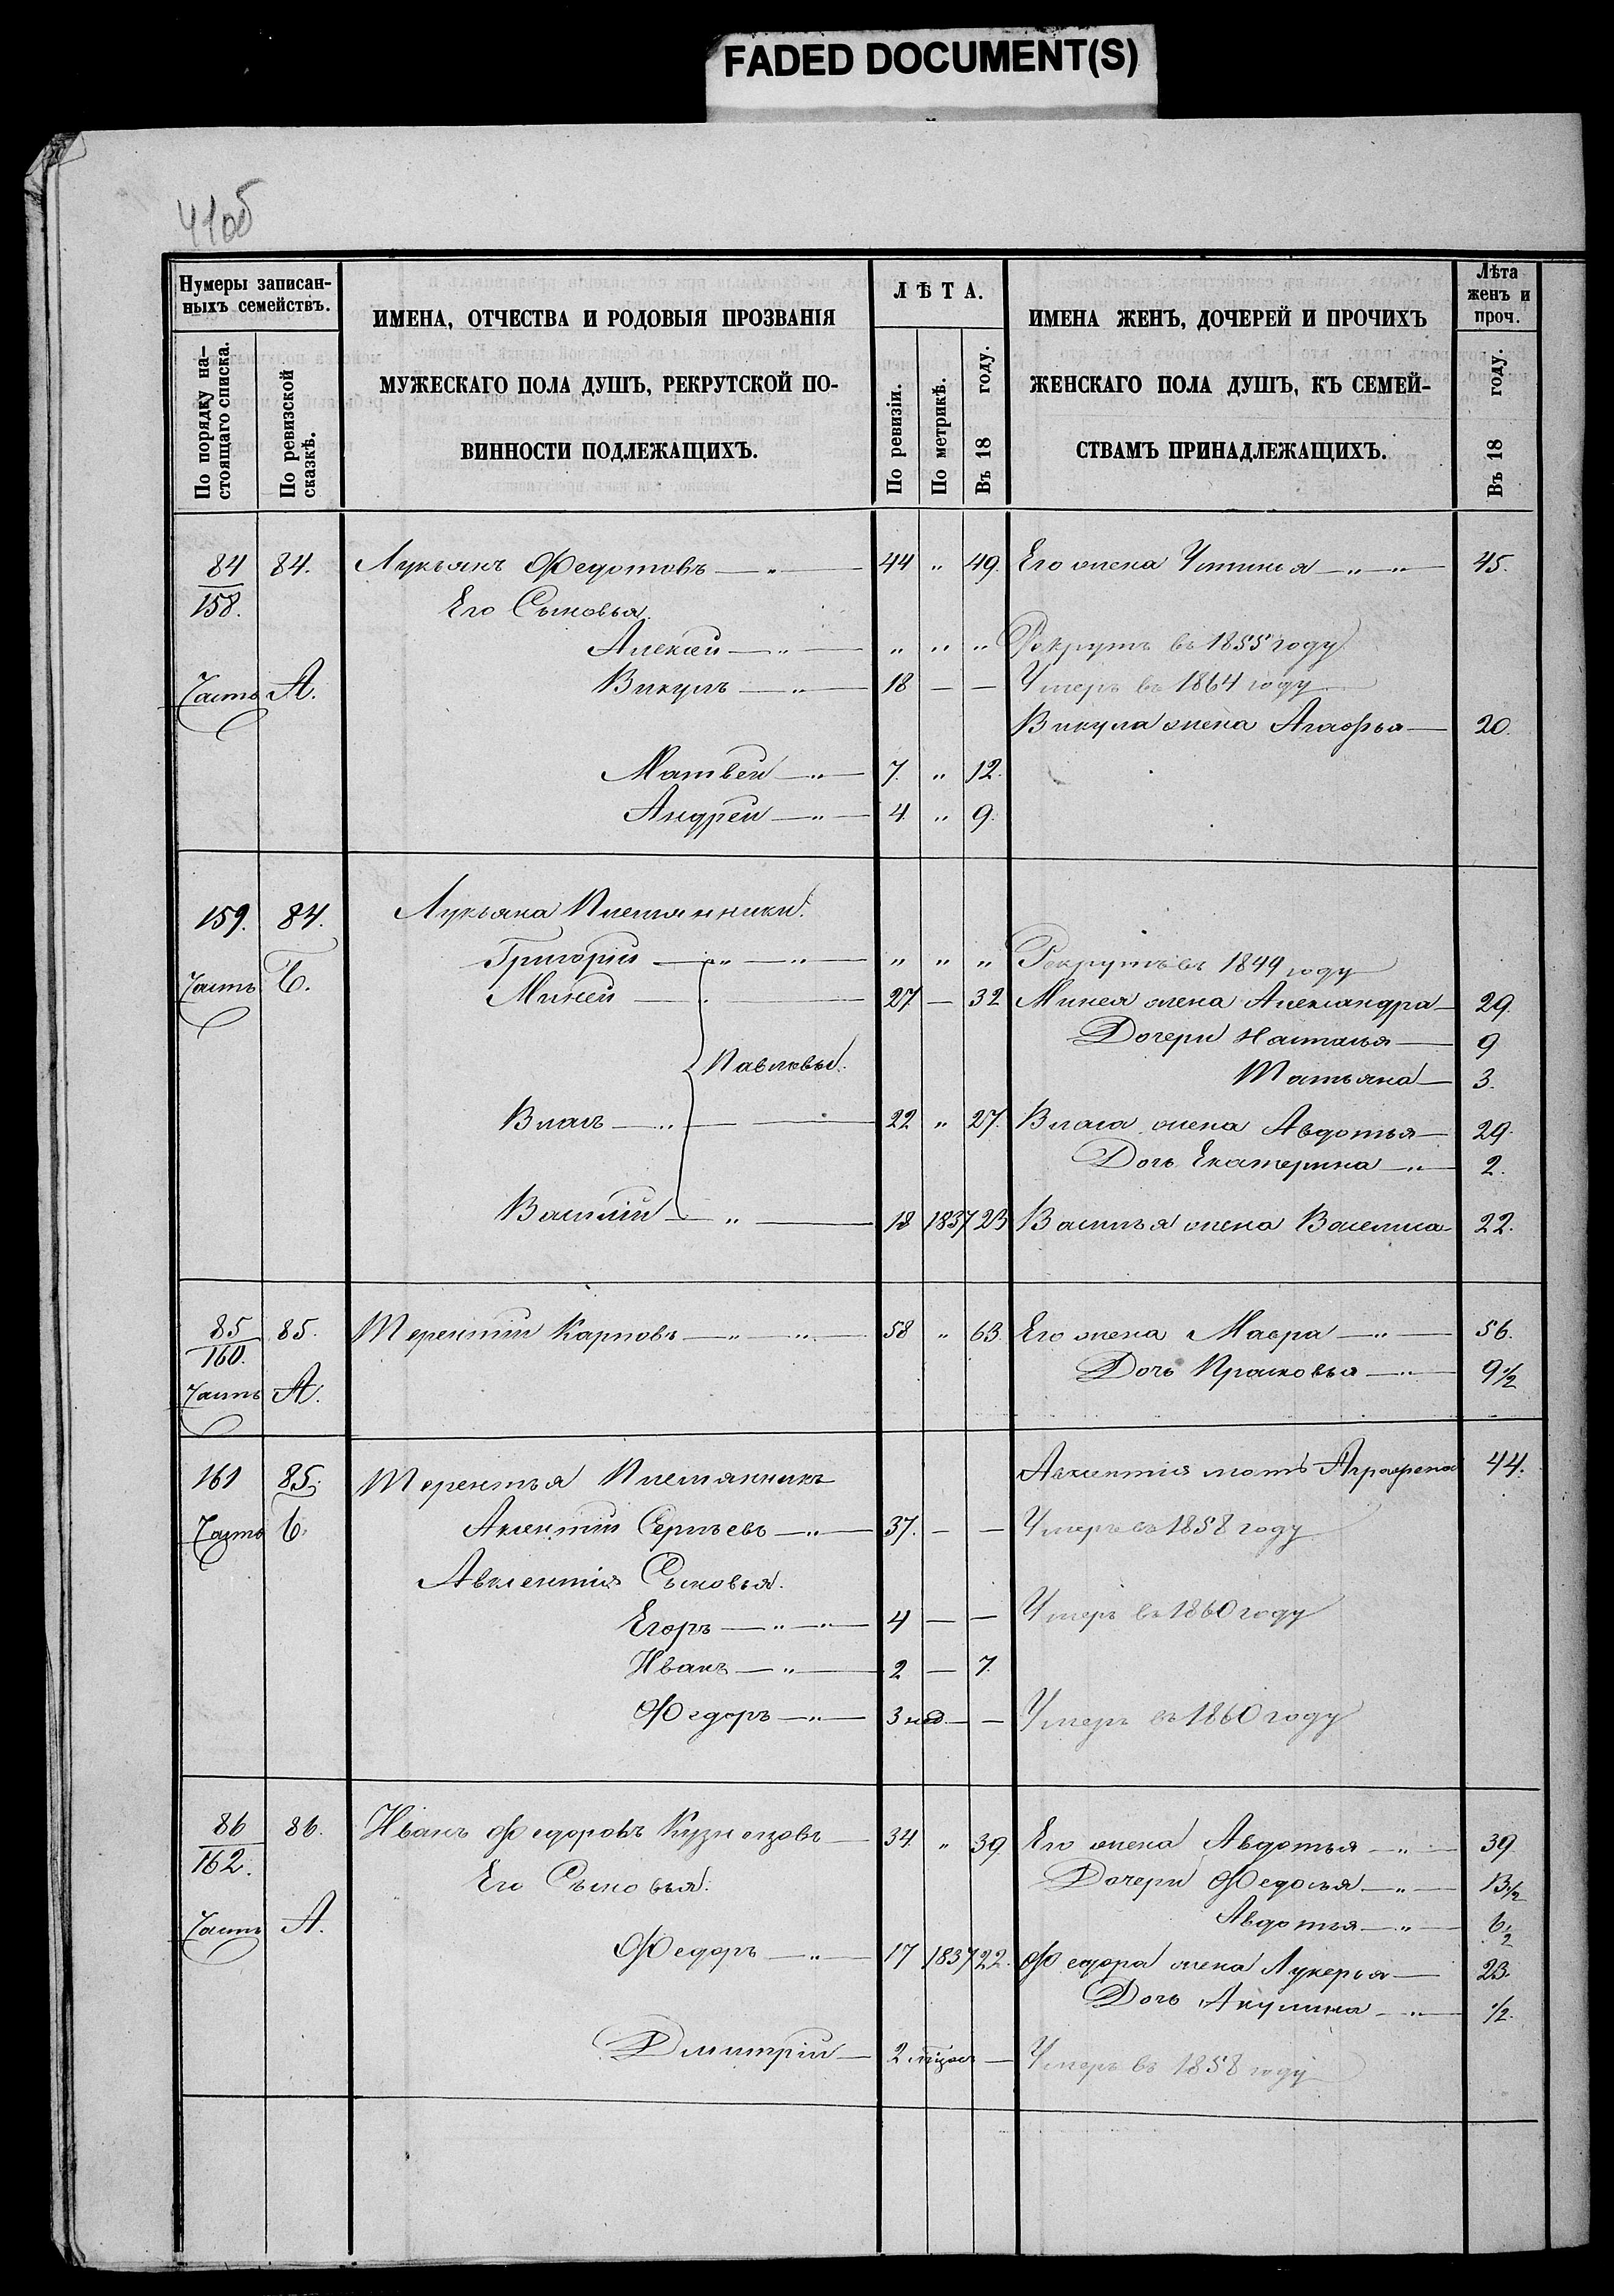 FADED DOCUMENT(S)
41об
Нумеры записан-
ныхъ семействъ.
По порядку на-
стоящаго списка.
По ревизской
сказкѣ.
ИМЕНА, ОТЧЕСТВА И РОДОВЫЯ ПРОЗВАНІЯ
МУЖЕСКАГО ПОЛА ДУШЪ, РЕКРУТСКОЙ ПО-
ВИННОСТИ ПОДЛЕЖАЩИХЪ.
ЛѢТА.
По ревизіи.
По метрикѣ.
Въ 18 году.
ИМЕНА ЖЕНЪ, ДОЧЕРЕЙ И ПРОЧИХЪ
ЖЕНСКАГО ПОЛА ДУШЪ, КЪ СЕМЕЙ-
СТВАМЪ ПРИНАДЛЕЖАЩИХЪ.
Лѣта
женъ и
проч.
Въ 18 году.
84 84. Лукьянъ Федотовъ — „ — 44 „ 49. Его жена Устинья — „ — „ 45.
158. Его Сыновья
Алексѣй — „ — „ „ „ Рекрутъ въ 1855 году
Часть А. Викулъ — „ — 18 — — Умеръ въ 1864 году
Викула жена Агафья — 20.
Матвей — „ — 7. „ 12.
Андрей — „ — 4. „ 9.
159. 84. Лукьяна Племянники.
Григорий — „ — „ — „ „ „ Рекрутъ въ 1849 году
Часть Б. Миней — 27 — 32 Минея жена Александра — 29.
Дочери Наталья — 9
Павловы. Татьяна — 3.
Власъ — „ — 22 „ 27. Власа жена Авдотья — 29.
Дочь Екатерина — „ — 2.
Василий — „ — 18 1837 23 Василья жена Василиса — 22.
85 85. Терентий Карповъ — „ — „ — 58 „ 63. Его жена Мавра — „ — 56.
160. Дочь Прасковья — „ — 9 1/2
Часть А.
Авксентия мать Аграфена 44.
161 85. Терентья Племянникъ
Часть Б. Аксентий Сергѣевъ — „ — 37. — — Умеръ въ 1858 году
Авксентия Сыновья.
Егоръ — „ — „ — 4 — — Умеръ въ 1860 году
Иванъ — „ — 2 — 7.
Федоръ — „ — 3 нед. — — Умеръ въ 1860 году
86 86. Иванъ Федоровъ Кузнецовъ — 34. „ 39 Его жена Авдотья — „ — 39.
162. Его Сыновья. Дочери Федосья — „ — 13 1/2
Часть А. Авдотья — „ — 6 1/2
Федоръ — „ — 17 1837 22. Федора жена Лукерья — 23.
Дочь Акулина — „ — 1/2.
Дмитрий — 2 — Умеръ въ 1858 году